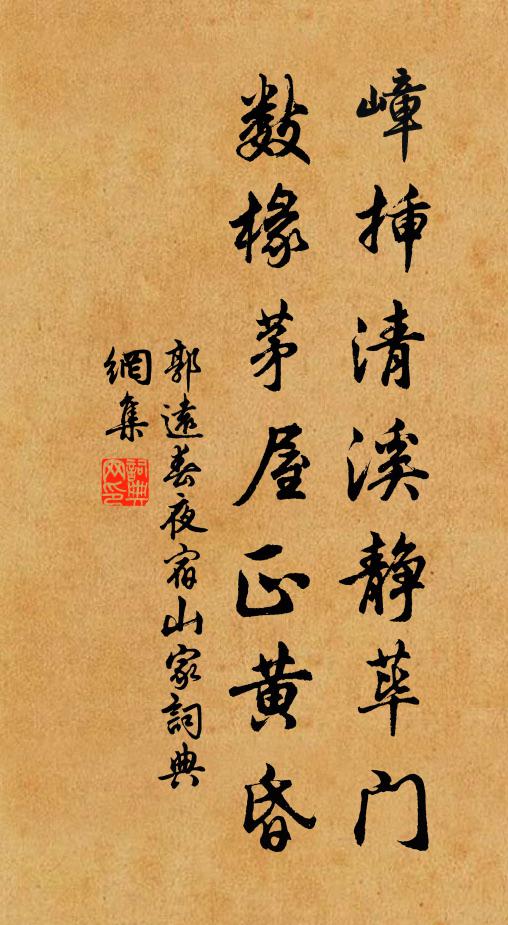 嶂插清溪静荜门
数椽茅屋正黄昏
郭遠春夜宿山家詞典
網集
詞典
网印